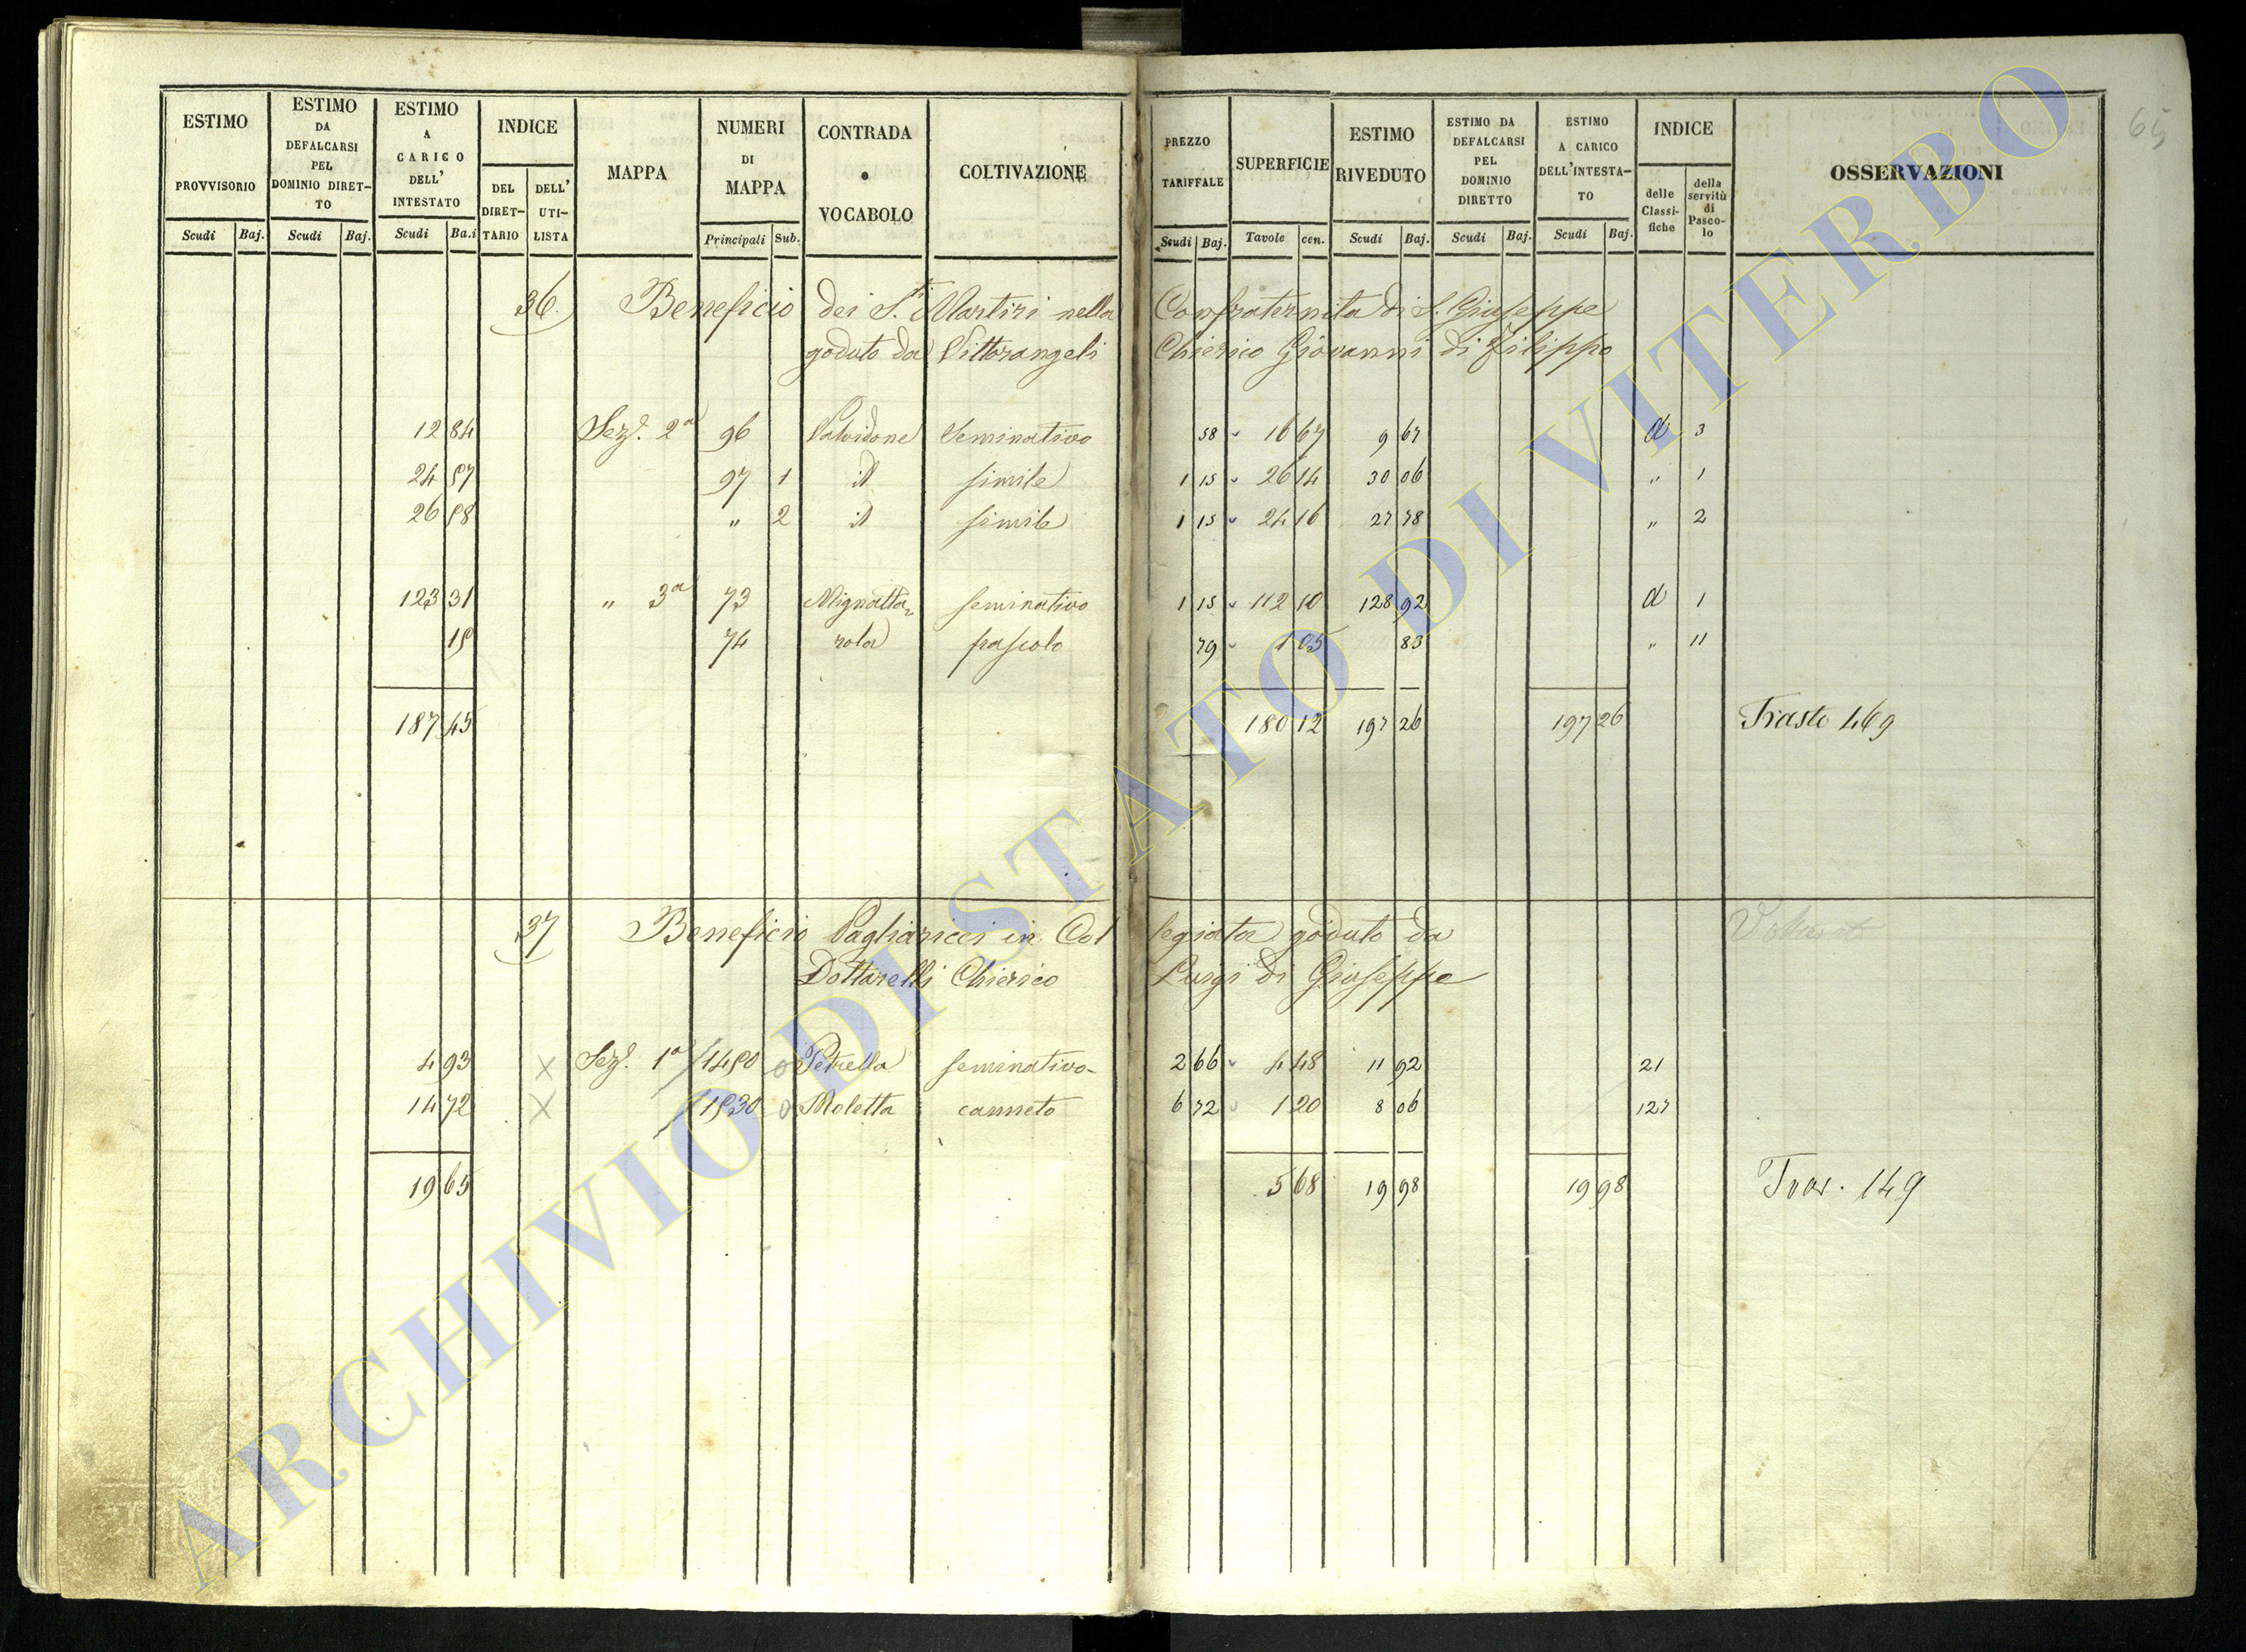 65
ESTIMO PROVVISORIO
Scudi Baj.
ESTIMO DA DEFALCARSI PEL DOMINIO DIRET- TO
Scudi Baj.
ESTIMO A CARICO DELL' INTESTATO
Scudi Ba.i
INDICE
DEL DIRET- TARIO
DELL' UTI- LISTA
MAPPA
NUMERI DI MAPPA
Principali Sub.
CONTRADA • VOCABOLO
COLTIVAZIONE
PREZZO TARIFFALE
Scudi Baj.
SUPERFICIE
Tavole cen.
ESTIMO RIVEDUTO
Scudi Baj.
ESTIMO DA DEFALCARSI PEL DOMINIO DIRETTO
Scudi Baj.
ESTIMO A CARICO DELL'INTESTA- TO
Scudi Baj.
INDICE
delle Classi- fiche
della servitù di Pasco- lo
OSSERVAZIONI
36. Beneficio dei S.ti Martiri nella Confraternita di S. Giuseppe
goduto da Vittorangeli Chierico Giovanni di Filippo
12 84 Sez.e 2a 96 Seminativo 58 16 67 9 67 d 3
24 57 97 1 id simile 1 15 26 14 30 06 " 1
26 58 " 2 id simile 1 15 24 16 27 78 " 2
123 31 " 3a 73 Mignatta= seminativo 1 15 112 10 128 92 d 1
15 74 rola pascolo 79 1 05 83 " 11
187 45 180 12 197 26 197 26 Trasto 469
37 Beneficio Pagliaricci in Col legiata goduto da
Dottarelli Chierico Luigi di Giuseppe
4 93 X Sez.e 1a 1450 o Petrella seminativo- 2 66 4 48 11 92 21
14 72 X 1530 o Moletta canneto 6 72 1 20 8 06 127
19 65 5 68 19 98 19 98 Tras. 149
ARCHIVIO DI STATO DI VITERBO